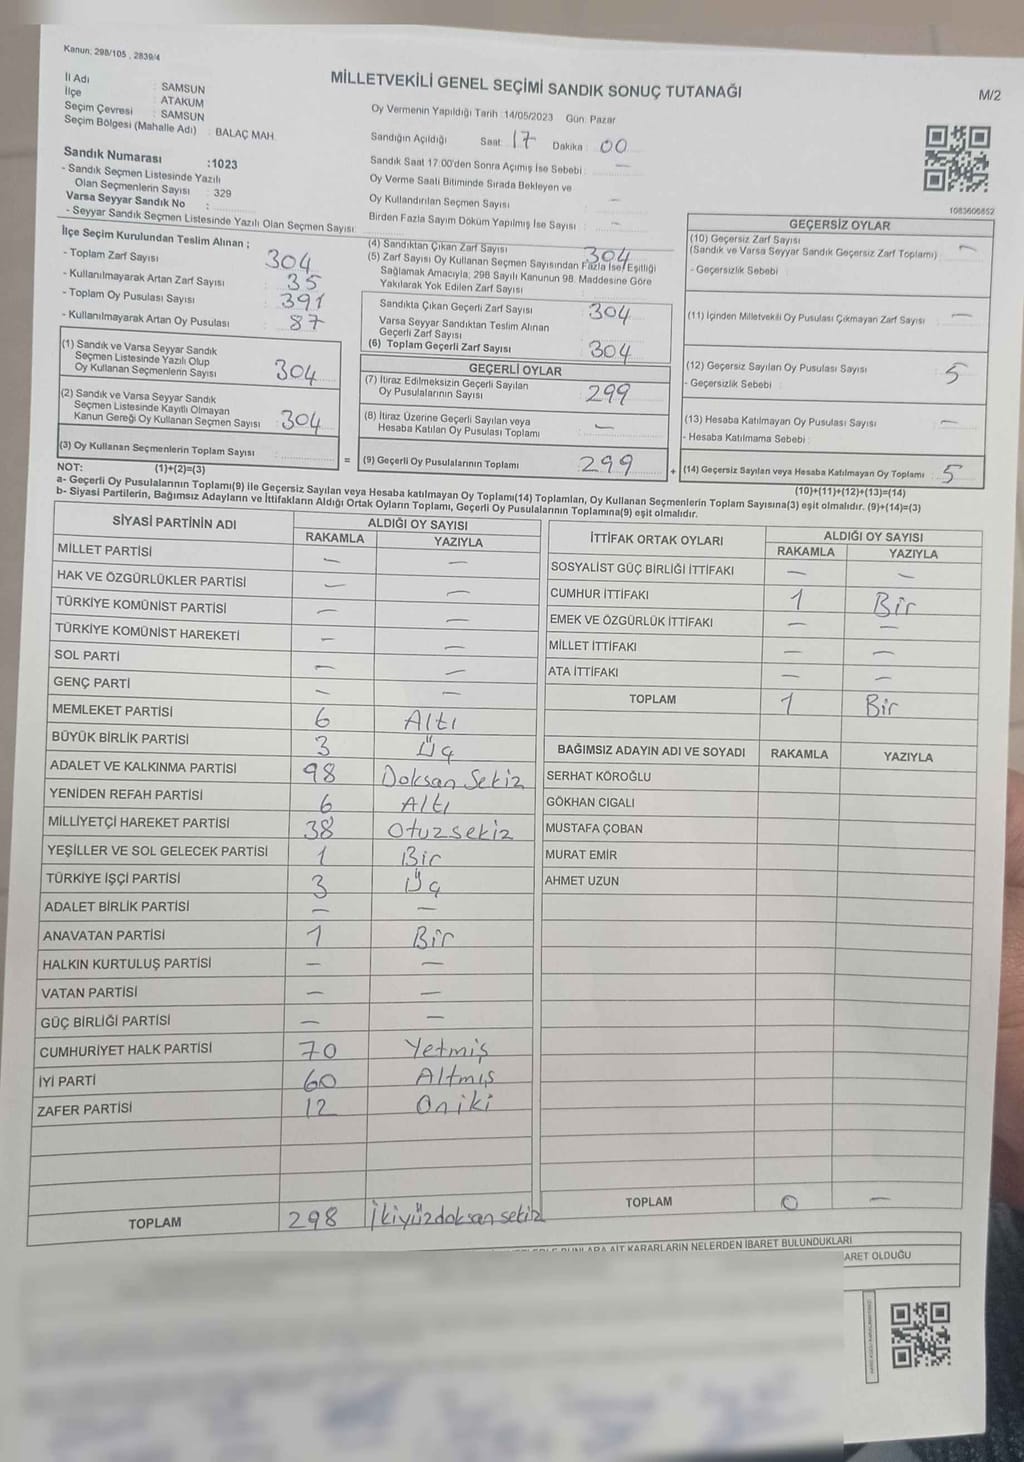 Kanun: 298/105 , 2839/4
MİLLETVEKİLİ GENEL SEÇİMİ SANDIK SONUÇ TUTANAĞI
M/2
İl Adı : SAMSUN
İlçe : ATAKUM
Seçim Çevresi : SAMSUN
Seçim Bölgesi (Mahalle Adı) : BALAÇ MAH.
Sandık Numarası :1023
- Sandık Seçmen Listesinde Yazılı
Olan Seçmenlerin Sayısı : 329
Varsa Seyyar Sandık No :
- Seyyar Sandık Seçmen Listesinde Yazılı Olan Seçmen Sayısı:
Oy Vermenin Yapıldığı Tarih :14/05/2023 Gün: Pazar
Sandığın Açıldığı Saat: 17 Dakika: 00
Sandık Saat 17:00'den Sonra Açımış İse Sebebi : —
Oy Verme Saati Bitiminde Sırada Bekleyen ve
Oy Kullandırılan Seçmen Sayısı : —
Birden Fazla Sayım Döküm Yapılmış İse Sayısı : —
1083606852
İlçe Seçim Kurulundan Teslim Alınan ;
- Toplam Zarf Sayısı : 304
- Kullanılmayarak Artan Zarf Sayısı : 35
- Toplam Oy Pusulası Sayısı : 391
- Kullanılmayarak Artan Oy Pusulası : 87
(1) Sandık ve Varsa Seyyar Sandık
Seçmen Listesinde Yazılı Olup
Oy Kullanan Seçmenlerin Sayısı : 304
(2) Sandık ve Varsa Seyyar Sandık
Seçmen Listesinde Kayıtlı Olmayan
Kanun Gereği Oy Kullanan Seçmen Sayısı : 304
(3) Oy Kullanan Seçmenlerin Toplam Sayısı :
(1)+(2)=(3)
(4) Sandıktan Çıkan Zarf Sayısı : 304
(5) Zarf Sayısı Oy Kullanan Seçmen Sayısından Fazla İse/ Eşitliği
Sağlamak Amacıyla; 298 Sayılı Kanunun 98. Maddesine Göre
Yakılarak Yok Edilen Zarf Sayısı :
Sandıkta Çıkan Geçerli Zarf Sayısı : 304
Varsa Seyyar Sandıktan Teslim Alınan
Geçerli Zarf Sayısı :
(6) Toplam Geçerli Zarf Sayısı : 304
GEÇERLİ OYLAR
(7) İtiraz Edilmeksizin Geçerli Sayılan
Oy Pusulalarının Sayısı : 299
(8) İtiraz Üzerine Geçerli Sayılan veya
Hesaba Katılan Oy Pusulası Toplamı : —
= (9) Geçerli Oy Pusulalarının Toplamı : 299
GEÇERSİZ OYLAR
(10) Geçersiz Zarf Sayısı
(Sandık ve Varsa Seyyar Sandık Geçersiz Zarf Toplamı) : —
- Geçersizlik Sebebi :
(11) İçinden Milletvekili Oy Pusulası Çıkmayan Zarf Sayısı : —
(12) Geçersiz Sayılan Oy Pusulası Sayısı : 5
- Geçersizlik Sebebi :
(13) Hesaba Katılmayan Oy Pusulası Sayısı : —
- Hesaba Katılmama Sebebi :
+ (14) Geçersiz Sayılan veya Hesaba Katılmayan Oy Toplamı : 5
(10)+(11)+(12)+(13)=(14)
NOT:
a- Geçerli Oy Pusulalarının Toplamı(9) ile Geçersiz Sayılan veya Hesaba katılmayan Oy Toplamı(14) Toplamları, Oy Kullanan Seçmenlerin Toplam Sayısına(3) eşit olmalıdır. (9)+(14)=(3)
b- Siyasi Partilerin, Bağımsız Adayların ve İttifakların Aldığı Ortak Oyların Toplamı, Geçerli Oy Pusulalarının Toplamına(9) eşit olmalıdır.
SİYASİ PARTİNİN ADI ALDIĞI OY SAYISI
RAKAMLA YAZIYLA
MİLLET PARTİSİ — —
HAK VE ÖZGÜRLÜKLER PARTİSİ — —
TÜRKİYE KOMÜNİST PARTİSİ — —
TÜRKİYE KOMÜNİST HAREKETİ — —
SOL PARTİ — —
GENÇ PARTİ — —
MEMLEKET PARTİSİ 6 Altı
BÜYÜK BİRLİK PARTİSİ 3 Üç
ADALET VE KALKINMA PARTİSİ 98 Doksan Sekiz
YENİDEN REFAH PARTİSİ 6 Altı
MİLLİYETÇİ HAREKET PARTİSİ 38 Otuzsekiz
YEŞİLLER VE SOL GELECEK PARTİSİ 1 Bir
TÜRKİYE İŞÇİ PARTİSİ 3 Üç
ADALET BİRLİK PARTİSİ — —
ANAVATAN PARTİSİ 1 Bir
HALKIN KURTULUŞ PARTİSİ — —
VATAN PARTİSİ — —
GÜÇ BİRLİĞİ PARTİSİ — —
CUMHURİYET HALK PARTİSİ 70 Yetmiş
İYİ PARTİ 60 Altmış
ZAFER PARTİSİ 12 Oniki
TOPLAM 298 İkiyüzdoksan sekiz
İTTİFAK ORTAK OYLARI ALDIĞI OY SAYISI
RAKAMLA YAZIYLA
SOSYALİST GÜÇ BİRLİĞİ İTTİFAKI — —
CUMHUR İTTİFAKI 1 Bir
EMEK VE ÖZGÜRLÜK İTTİFAKI — —
MİLLET İTTİFAKI — —
ATA İTTİFAKI — —
TOPLAM 1 Bir
BAĞIMSIZ ADAYIN ADI VE SOYADI RAKAMLA YAZIYLA
SERHAT KÖROĞLU
GÖKHAN CIGALI
MUSTAFA ÇOBAN
MURAT EMİR
AHMET UZUN
TOPLAM 0 —
AİT KARARLARIN NELERDEN İBARET BULUNDUKLARI
ARET OLDUĞU